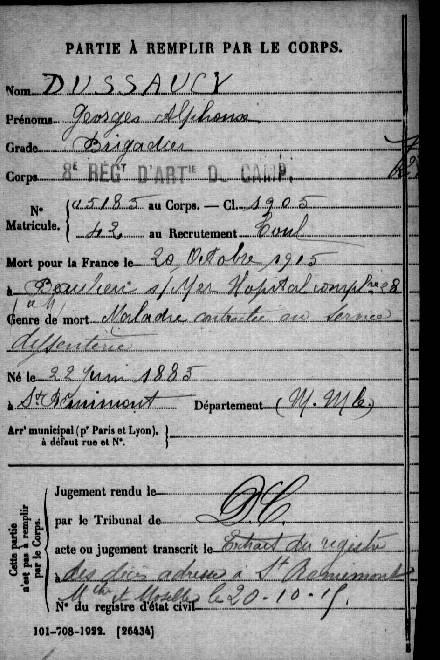 PARTIE À REMPLIR PAR LE CORPS.
Nom DUSSAUCY
Prénoms Georges Alphonse
Grade Brigadier
Corps 8E REGT D'ARTIE DE CAMP.
N° Matricule. { 05185 au Corps. — Cl. 1905
42 au Recrutement Toul
Mort pour la France le 20 Octobre 1915
à Beaulieu s/Mer Hopital compl re 28
Genre de mort Maladie contractée au service
dissenterie
Né le 22 juin 1885
à St Remimont Département (M. Mlle)
Arr' municipal (p' Paris et Lyon), à défaut rue et N°. }
Cette partie n'est pas à remplir par le Corps.
Jugement rendu le
par le Tribunal de D.C.
acte ou jugement transcrit le Extrait du registre
à des décès adressé à St Remimont
Mthe et Moselle le 20-10-15.
N° du registre d'état civil
101-708-1922. [26434]